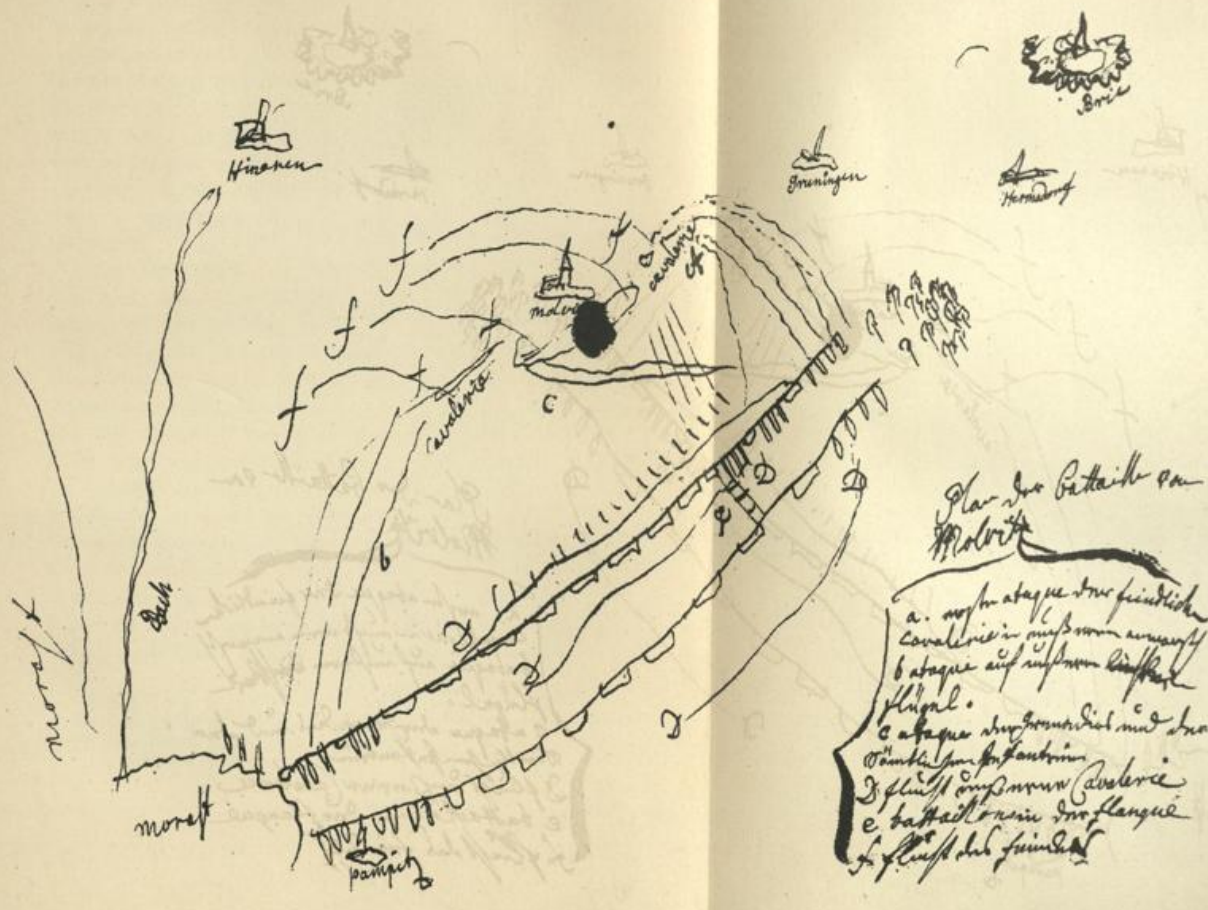 Brie
Hinonen
Gruningen
Hermsdorf
f
f
cavalerie
a
f
Molvi
f
cavalerie
f
C
b
D
D
D
D
e
D
Bach
morast
morast
pampitz
Plan der battaille von
Molvitz
a. erste ataque der feindlichen
Cavalerie in unßerem anmarsch
b ataque auf unßeren linken
flügel.
c ataque der Grenadirs und der
Sämtlichen Infanterie
D flucht unßerer Cavalerie
e battaillons in der flanque
f. flucht des feindes